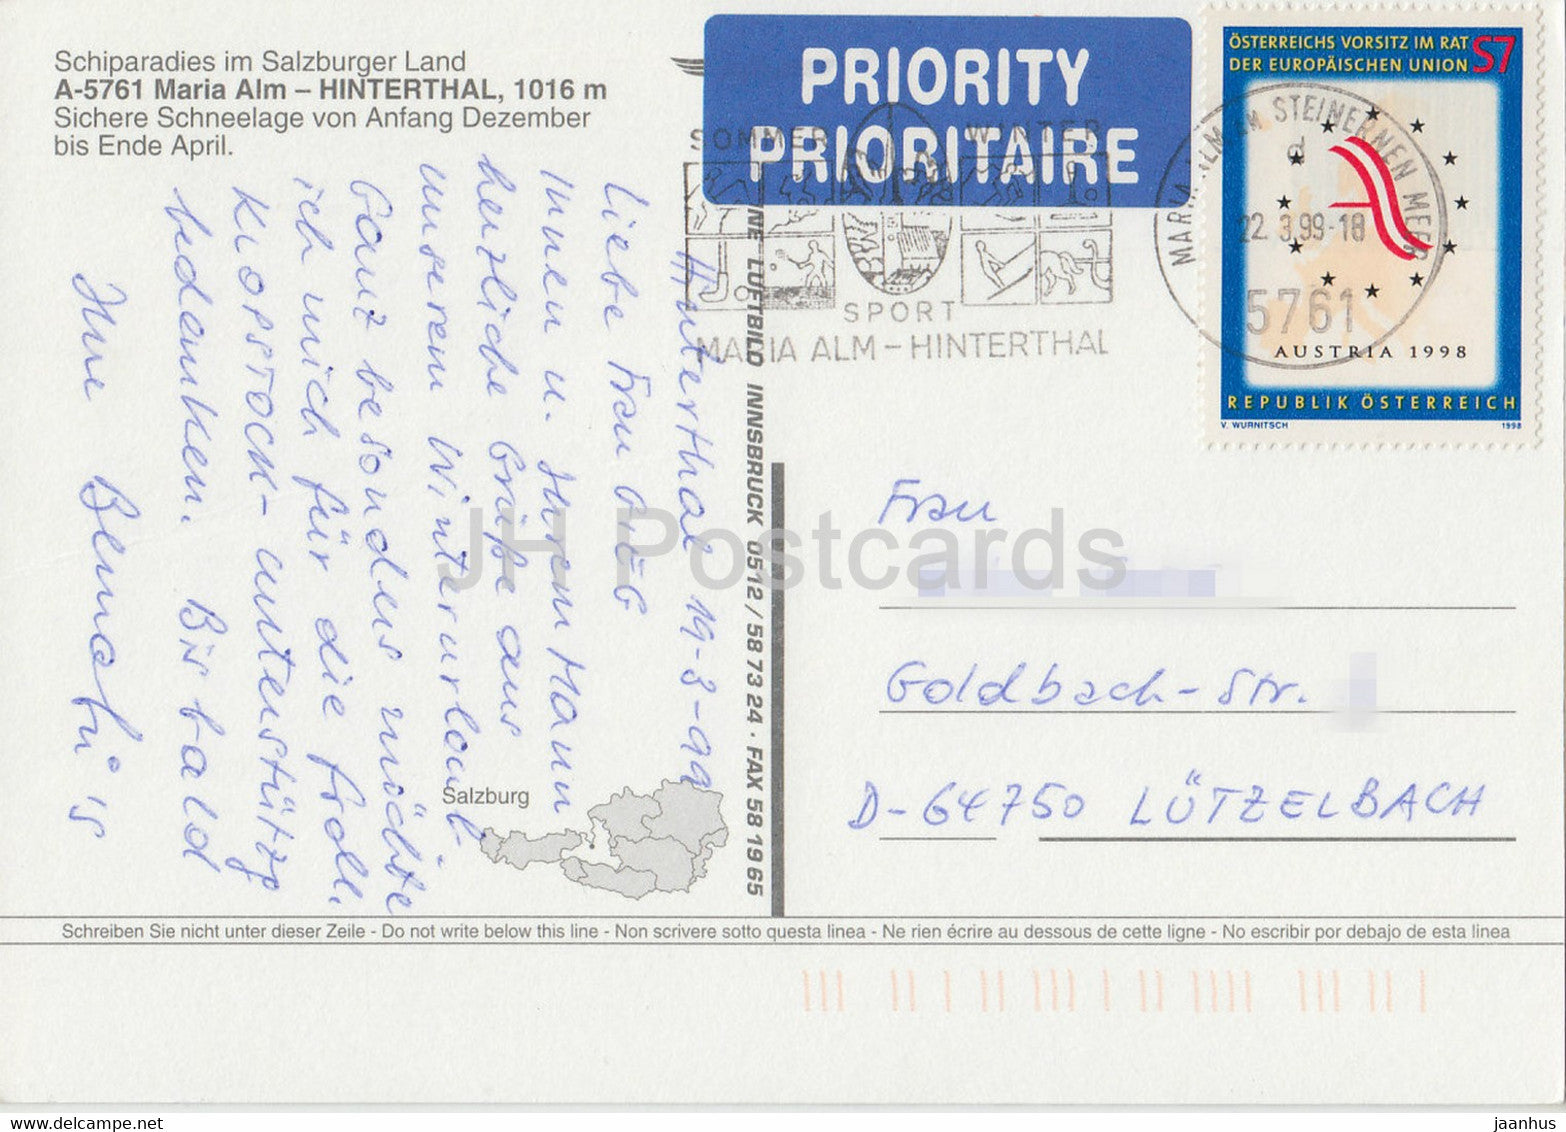 Schiparadies im Salzburger Land
A-5761 Maria Alm – HINTERTHAL, 1016 m
Sichere Schneelage von Anfang Dezember
bis Ende April.
PRIORITY
PRIORITAIRE
SOMMER WINTER
SPORT
MARIA ALM – HINTERTHAL
MARIA ALM AM STEINERNEN MEER
d
22.3.99-18
5761
ÖSTERREICHS VORSITZ IM RAT
DER EUROPÄISCHEN UNION S7
AUSTRIA 1998
REPUBLIK ÖSTERREICH
V. WURNITSCH 1998
LUFTBILD INNSBRUCK 0512 / 58 73 24 · FAX 58 19 65
Hinterthal 19-3-99
Liebe Frau
Ihnen u. Ihrem Mann
herzliche Grüße aus
unserem Winterurlaub.
Ganz besonders möchte
ich mich für die
unterstützg
bedanken. Bis bald
Ihre
Frau
Goldbach-Str.
D-64750 LÜTZELBACH
Salzburg
Schreiben Sie nicht unter dieser Zeile - Do not write below this line - Non scrivere sotto questa linea - Ne rien écrire au dessous de cette ligne - No escribir por debajo de esta linea
JH Postcards
jaanhus © delcampe.net